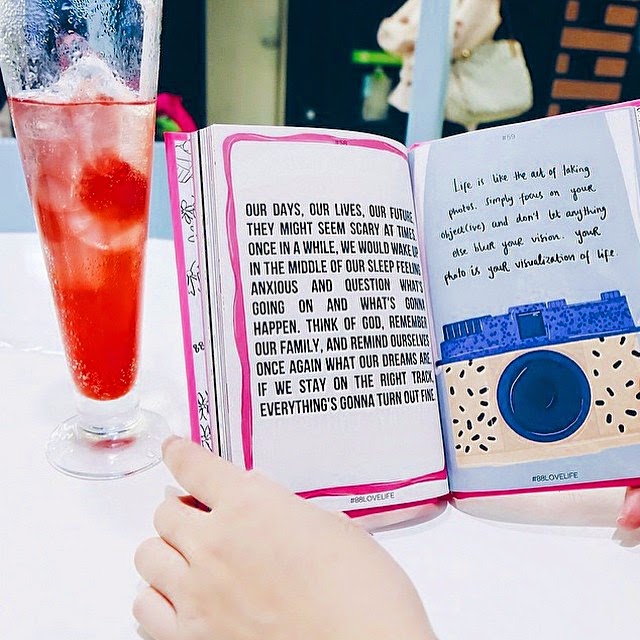 OUR DAYS, OUR LIVES, OUR FUTURE.
THEY MIGHT SEEM SCARY AT TIMES.
ONCE IN A WHILE, WE WOULD WAKE UP
IN THE MIDDLE OF OUR SLEEP FEELING
ANXIOUS AND QUESTION WHAT'S
GOING ON AND WHAT'S GONNA
HAPPEN. THINK OF GOD, REMEMBER
OUR FAMILY, AND REMIND OURSELVES
ONCE AGAIN WHAT OUR DREAMS ARE.
IF WE STAY ON THE RIGHT TRACK,
EVERYTHING'S GONNA TURN OUT FINE
#88LOVELIFE
#59
Life is like the art of taking
photos. Simply focus on your
object(ive) and don't let anything
else blur your vision. your
photo is your visualization of life.
#88LOVELIFE